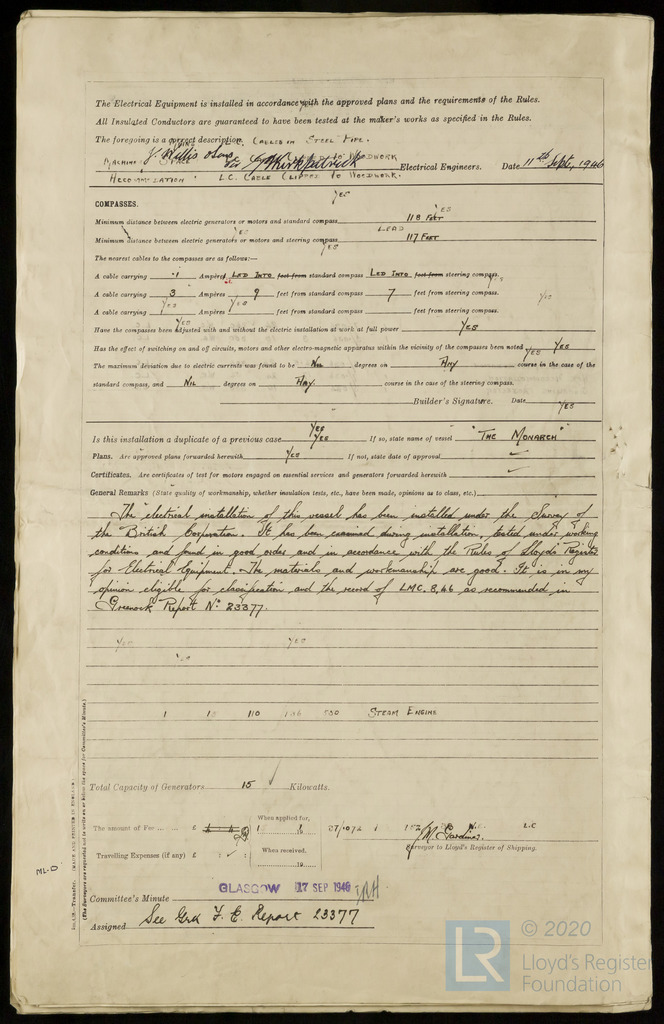 The Electrical Equipment is installed in accordance with the approved plans and the requirements of the Rules.
All Insulated Conductors are guaranteed to have been tested at the maker's works as specified in the Rules.
The foregoing is a correct description. CABLES IN STEEL PIPE.
MACHINE SPACE TO WOODWORK
J. Willis & Sons Kirkpatrick Electrical Engineers. Date 11th Sept, 1946
ACCOMMODATION: L.C. CABLE CLIPPED TO WOODWORK.
YES
COMPASSES.
Minimum distance between electric generators or motors and standard compass 118 FEET YES
YES LEAD
Minimum distance between electric generators or motors and steering compass 117 FEET
YES
The nearest cables to the compasses are as follows:—
A cable carrying .1 Ampères LED INTO feet from standard compass LED INTO feet from steering compass.
A cable carrying 3 Ampères 9 feet from standard compass 7 feet from steering compass. YES
YES YES
A cable carrying Ampères feet from standard compass feet from steering compass.
YES
Have the compasses been adjusted with and without the electric installation at work at full power YES
Has the effect of switching on and off circuits, motors and other electro-magnetic apparatus within the vicinity of the compasses been noted YES YES
The maximum deviation due to electric currents was found to be NIL degrees on ANY course in the case of the
standard compass, and NIL degrees on ANY course in the case of the steering compass.
Builder's Signature. Date YES
YES
Is this installation a duplicate of a previous case YES If so, state name of vessel "THE MONARCH"
Plans. Are approved plans forwarded herewith YES If not, state date of approval
Certificates. Are certificates of test for motors engaged on essential services and generators forwarded herewith
General Remarks (State quality of workmanship, whether insulation tests, etc., have been made, opinions as to class, etc.)
The electrical installation of this vessel has been installed under the Survey of
the British Corporation. It has been examined during installation, tested under working
conditions and found in good order and in accordance with the Rules of Lloyds Register
for Electrical Equipment. The materials and workmanship are good. It is in my
opinion eligible for classification and the record of LMC. 8,46 as recommended in
Greenock Report No 23377.
YES YES
1 15 110 136 550 STEAM ENGINE
Total Capacity of Generators 15 Kilowatts.
When applied for,
The amount of Fee ... £ J.M. Gardiner. L.C
Surveyor to Lloyd's Register of Shipping.
Travelling Expenses (if any) £
When received,
19
ML.D
GLASGOW 17 SEP 1946
Committee's Minute
Assigned See Grk F. E. Report 23377
(The Surveyors are requested not to write on or below the space for Committee's Minute.)
Transfer. (MADE AND PRINTED IN ENGLAND.)
LR
© 2020
Lloyd's Register
Foundation